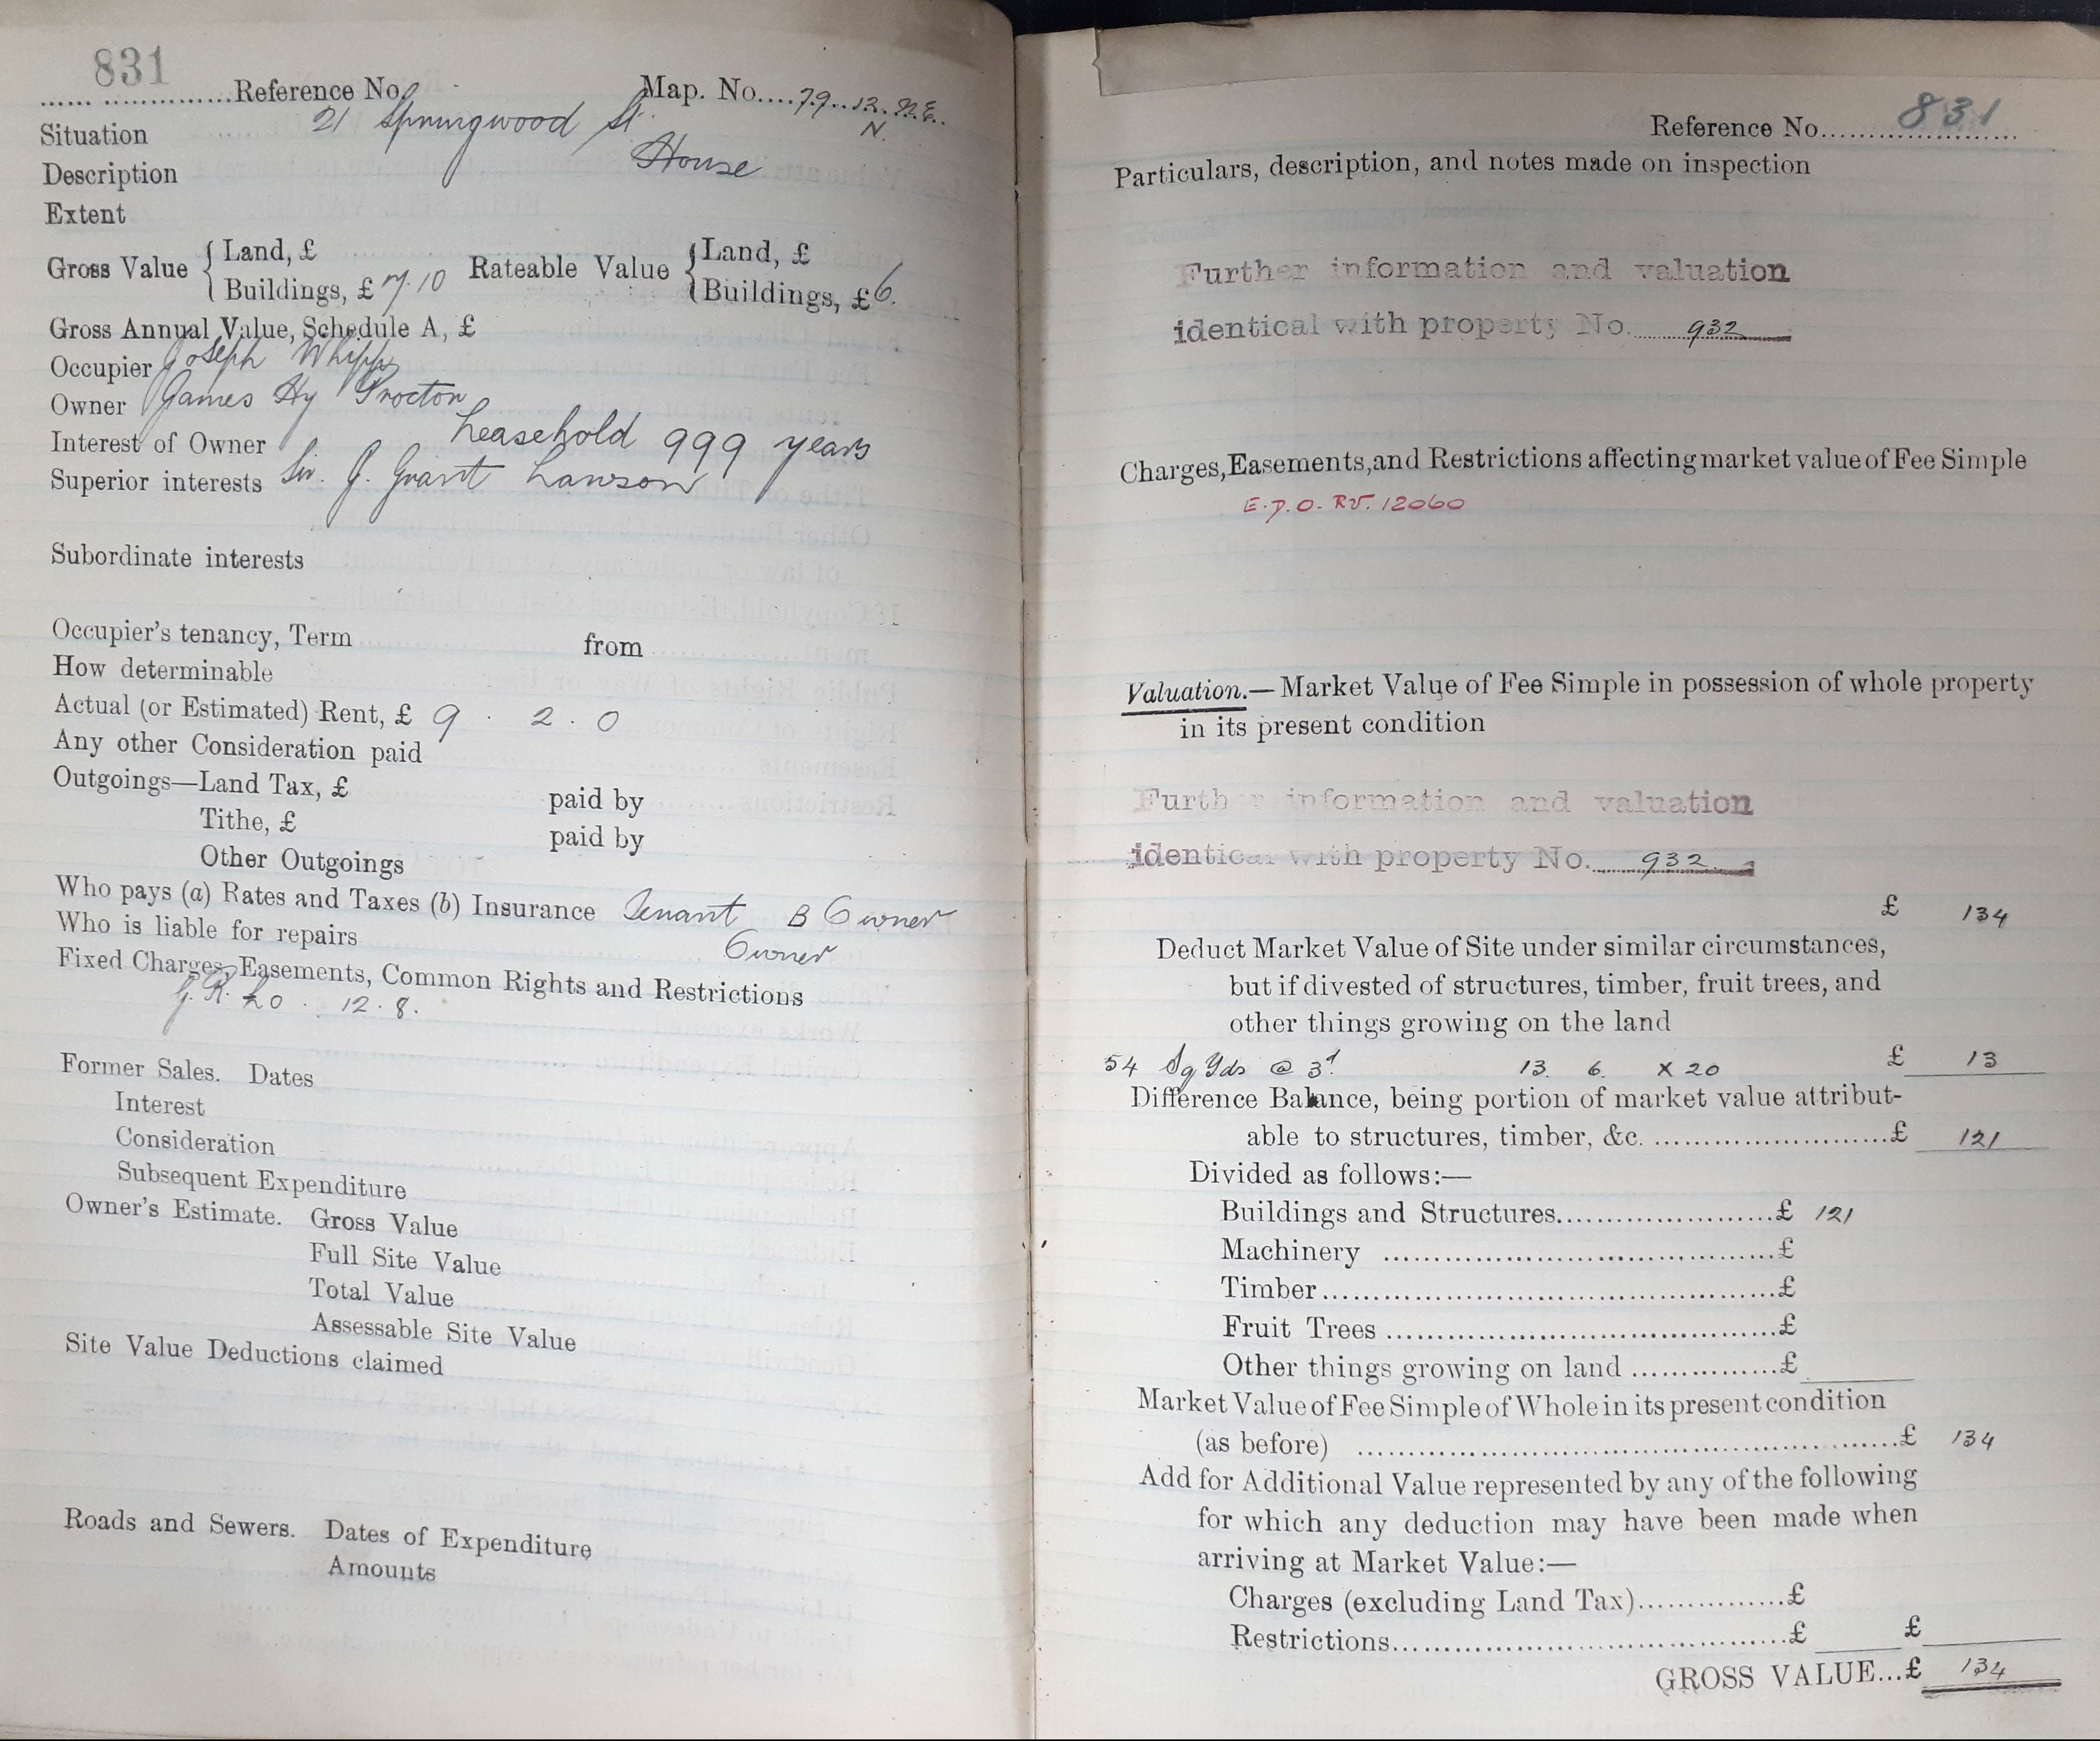 831
...... ..............Reference No. Map. No....79..12. N.E..
N.
Situation 21 Springwood St.
Description House
Extent
Gross Value { Land, £ Rateable Value { Land, £
Buildings, £ 7.10 Buildings, £ 6.
Gross Annual Value, Schedule A, £
Occupier Joseph Whipp
Owner James Hy Procton
Interest of Owner Leasehold 999 years
Superior interests Sir. J. Grant Lawson
Subordinate interests
Occupier's tenancy, Term from
How determinable
Actual (or Estimated) Rent, £ 9 . 2 . 0
Any other Consideration paid
Outgoings—Land Tax, £ paid by
Tithe, £ paid by
Other Outgoings
Who pays (a) Rates and Taxes (b) Insurance Tenant B Owner
Who is liable for repairs Owner
Fixed Charges, Easements, Common Rights and Restrictions
G. R. £0 . 12 . 8.
Former Sales. Dates
Interest
Consideration
Subsequent Expenditure
Owner's Estimate. Gross Value
Full Site Value
Total Value
Assessable Site Value
Site Value Deductions claimed
Roads and Sewers. Dates of Expenditure
Amounts
Reference No. 831
Particulars, description, and notes made on inspection
Further information and valuation
identical with property No. 932
Charges, Easements, and Restrictions affecting market value of Fee Simple
RV. 12060
Valuation.—Market Value of Fee Simple in possession of whole property
in its present condition
Further information and valuation
identical with property No. 932
£ 134
Deduct Market Value of Site under similar circumstances,
but if divested of structures, timber, fruit trees, and
other things growing on the land
54 Sq Yds @ 3d. 13. 6. X 20 £ 13
Difference Balance, being portion of market value attribut-
able to structures, timber, &c. ........................£ 121
Divided as follows:—
Buildings and Structures......................£ 121
Machinery ........................................£
Timber..............................................£
Fruit Trees ........................................£
Other things growing on land ...............£
Market Value of Fee Simple of Whole in its present condition
(as before) ........................................................£ 134
Add for Additional Value represented by any of the following
for which any deduction may have been made when
arriving at Market Value:—
Charges (excluding Land Tax)...............£
Restrictions..........................................£ £
GROSS VALUE...£ 134